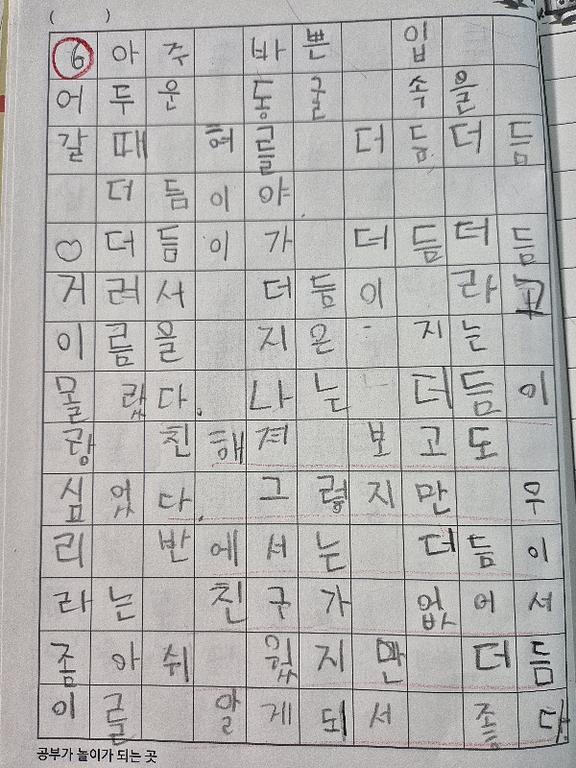 (        )
6 아주 바쁜 입
어두운 동굴 속을
갈때 혀를 더듬더듬
더듬이야.
♡더듬이가 더듬더듬
거려서 더듬이라고
이름을 지은 지는
몰랐다. 나는 더듬이
랑 친해져 보고도
심었다. 그렇지만 우
리 반에서는 더듬이
라는 친구가 없어서
좀아쉬웠지만 더듬
이를 알게되서 좋다.
공부가 놀이가 되는 곳